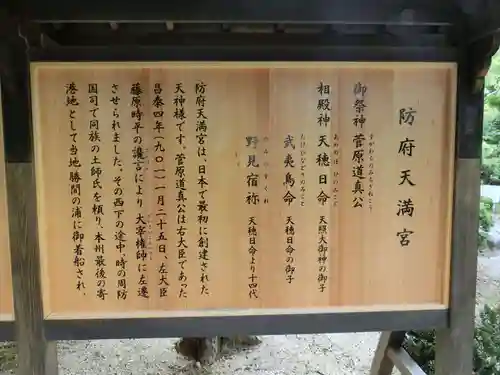 防府天満宮
御祭神 菅原道真公
すがわらのみちざねこう
相殿神 天穂日命 天照大御神の御子
あめのほひのみこと
武夷鳥命 天穂日命の御子
たけひなどりのみこと
野見宿祢 天穂日命より十四代
のみのすくね
防府天満宮は、日本で最初に創建された
天神様です。菅原道真公は右大臣であった
昌泰四年(九〇一)一月二十五日、左大臣
藤原時平の讒言により大宰権帥に左遷
させられました。その西下の途中、時の周防
国司で同族の土師氏を頼り、本州最後の寄
港地として当地勝間の浦に御着船され、